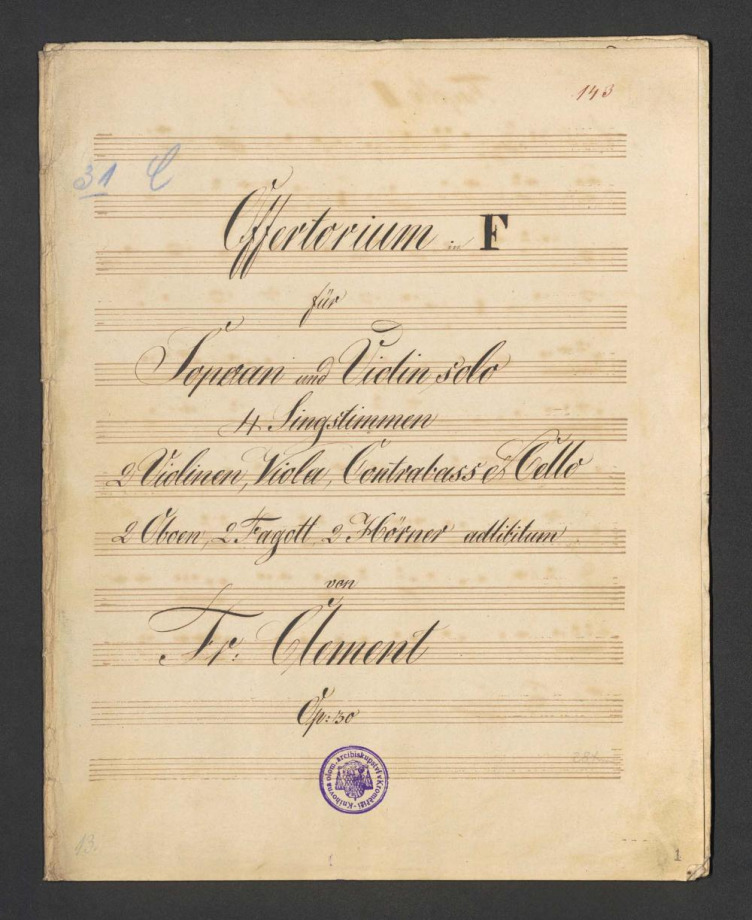 143
31 C
Offertorium in F
für
Sopran und Violin solo
4 Singstimmen
2 Violinen, Viola, Contrabass et Cello
2 Oboen, 2 Fagott 2 Hörner adlibitum.
von
Fr: Clement
Op: 30
Knihovna olom. arcibiskupství v Kroměříži
13.
1